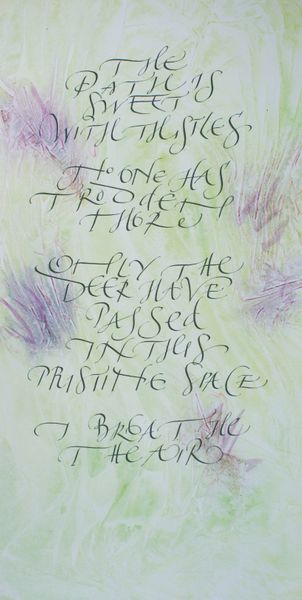 THE
PATH IS
SWEET
WITH THISTLES
NO ONE HAS
TRODDEN
THERE
ONLY THE
DEER HAVE
PASSED
IN THIS
PRISTINE SPACE
I BREATHE
THE AIR